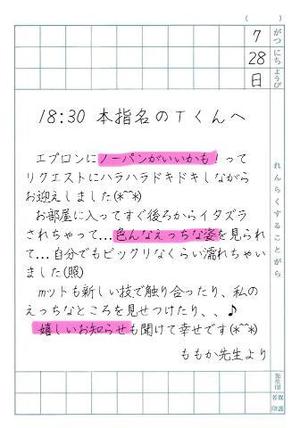 ( )
7 がつ
28 にち
日 ようび
れんらくすることがら
18:30 本指名のTくんへ
エプロンにノーパンがいいかも！って
リクエストにハラハラドキドキしながら
お迎えしました(*^^*)
お部屋に入ってすぐ後ろからイタズラ
されちゃって...色んなえっちな姿を見られ
て...自分でもビックリなくらい濡れちゃい
ました(照)
mットも新しい技で触り合ったり、私の
えっちなところを見せつけたり、、♪
嬉しいお知らせも聞けて幸せです(*^^*)
ももか先生より